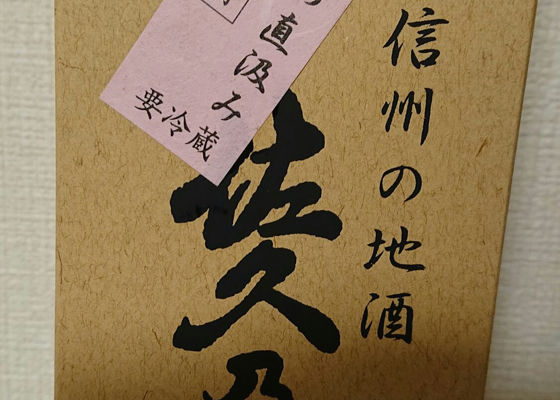 信州の地酒
佐久乃
直汲み
要冷蔵